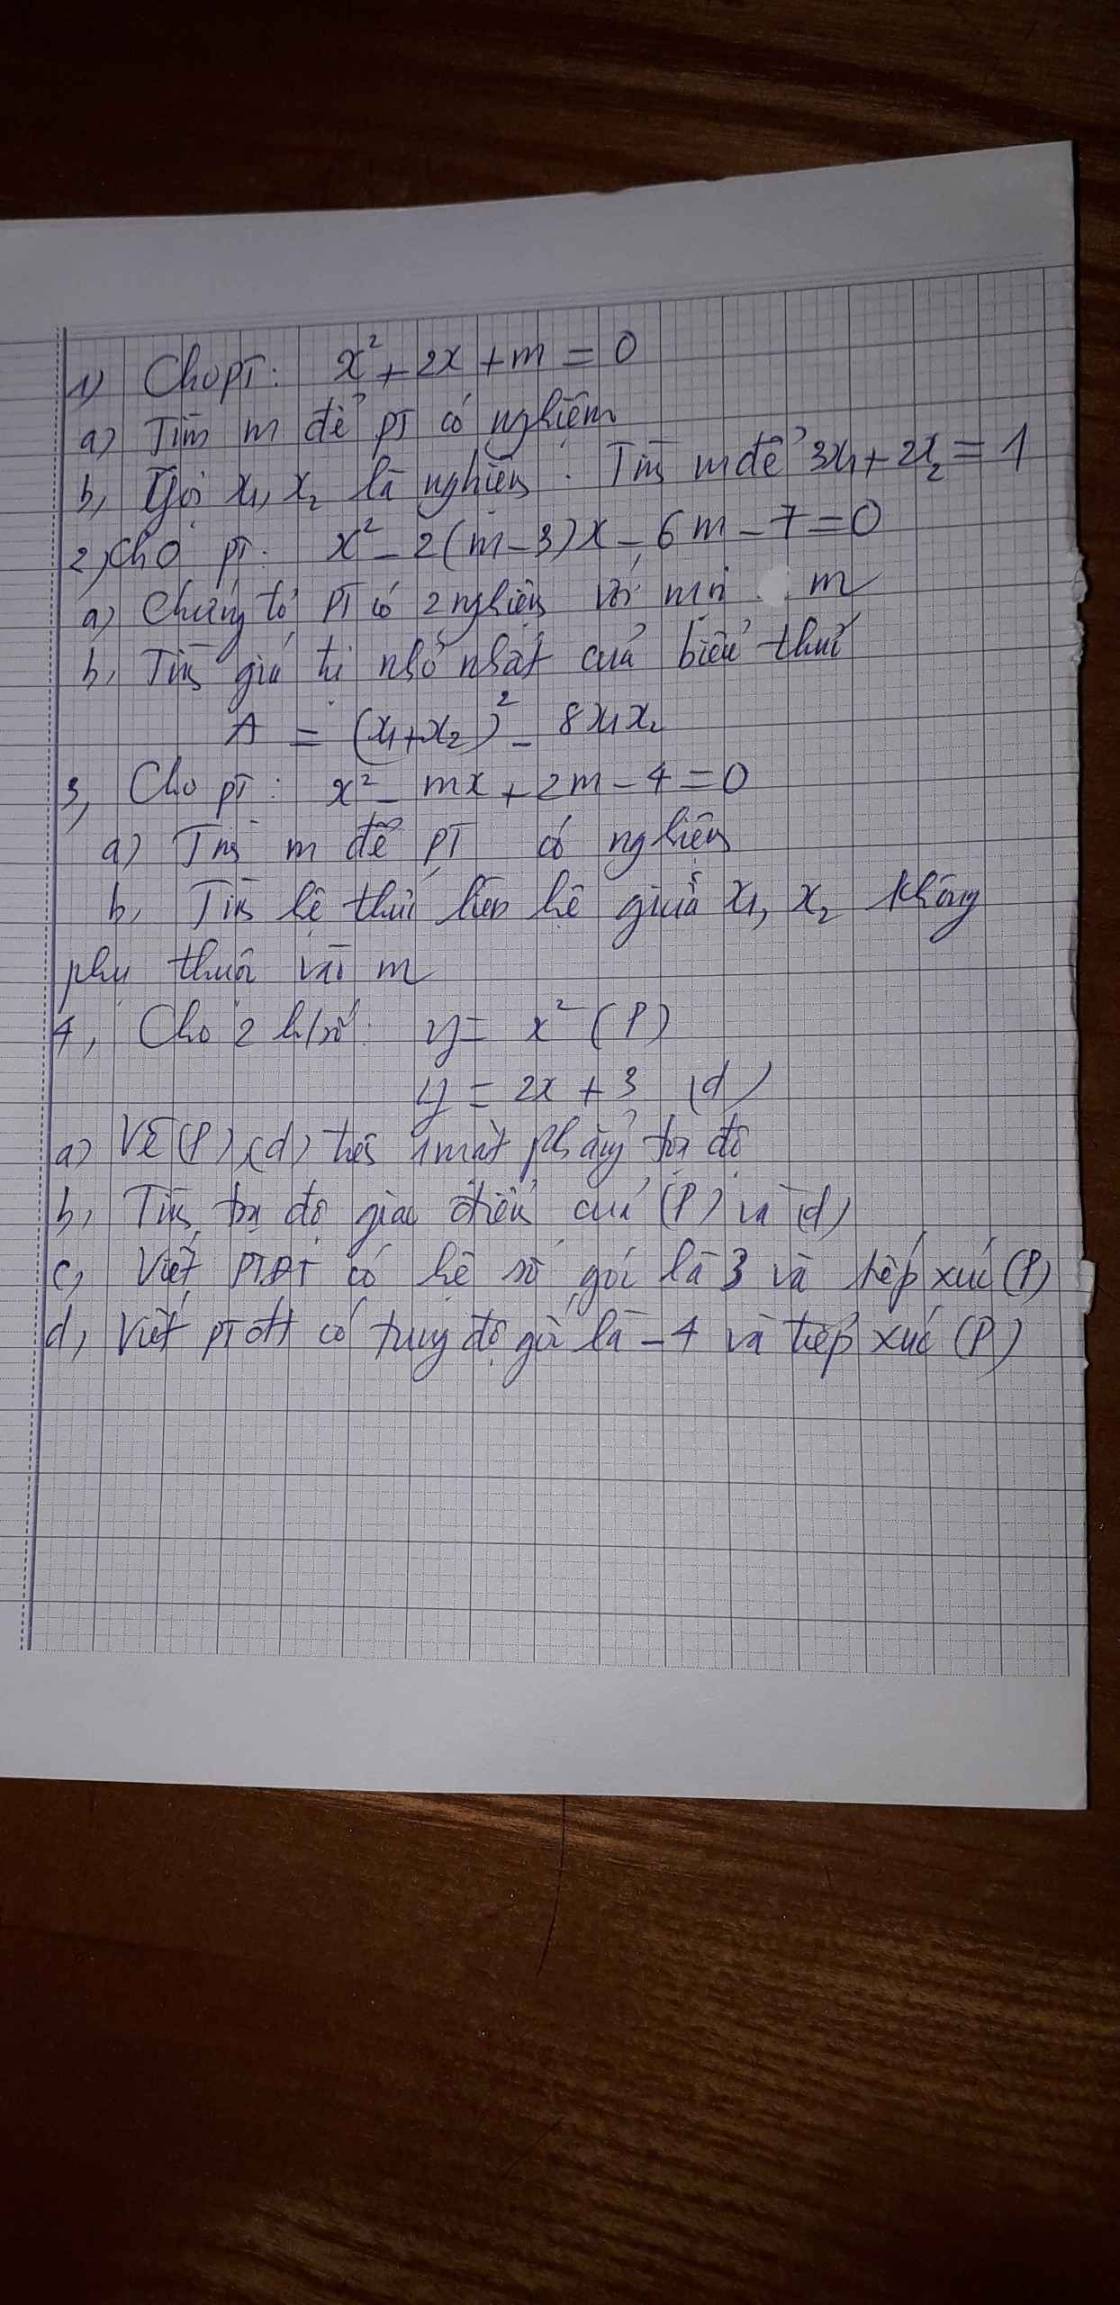 1) Cho PT: x² + 2x + m = 0
a) Tìm m để PT có nghiệm
b, Gọi x₁, x₂ là nghiệm. Tìm m để 3x₁ + 2x₂ = 1
2, Cho PT: x² - 2(m - 3)x - 6m - 7 = 0
a) Chứng tỏ PT có 2 nghiệm với mọi m
b, Tìm giá trị nhỏ nhất của biểu thức
A = (x₁ + x₂)² - 8x₁x₂
3, Cho PT: x² - mx + 2m - 4 = 0
a) Tìm m để PT có nghiệm
b, Tìm hệ thức liên hệ giữa x₁, x₂ không
phụ thuộc vào m
4, Cho 2 h/số: y = x² (P)
y = 2x + 3 (d)
a) Vẽ (P), (d) trên 1 mặt phẳng tọa độ
b, Tìm tọa độ giao điểm của (P) và (d)
c, Viết PTĐT có hệ số góc là 3 và tiếp xúc (P)
d, Viết PT đt có tung độ gốc là -4 và tiếp xúc (P)